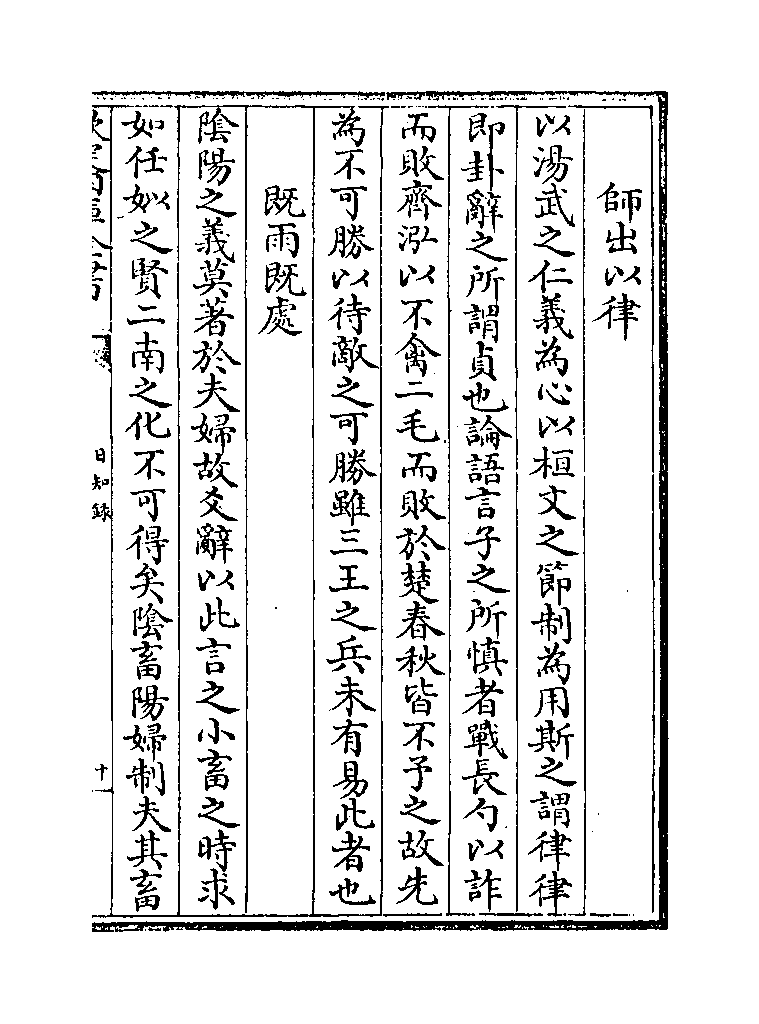 師出以律
以湯武之仁義為心以桓文之節制為用斯之謂律律
即卦辭之所謂貞也論語言子之所慎者戰長勺以詐
而敗齊泓以不禽二毛而敗於楚春秋皆不予之故先
為不可勝以待敵之可勝雖三王之兵未有易此者也
既雨既處
陰陽之義莫著於夫婦故爻辭以此言之小畜之時求
如任姒之賢二南之化不可得矣陰畜陽婦制夫其畜
日知錄
十